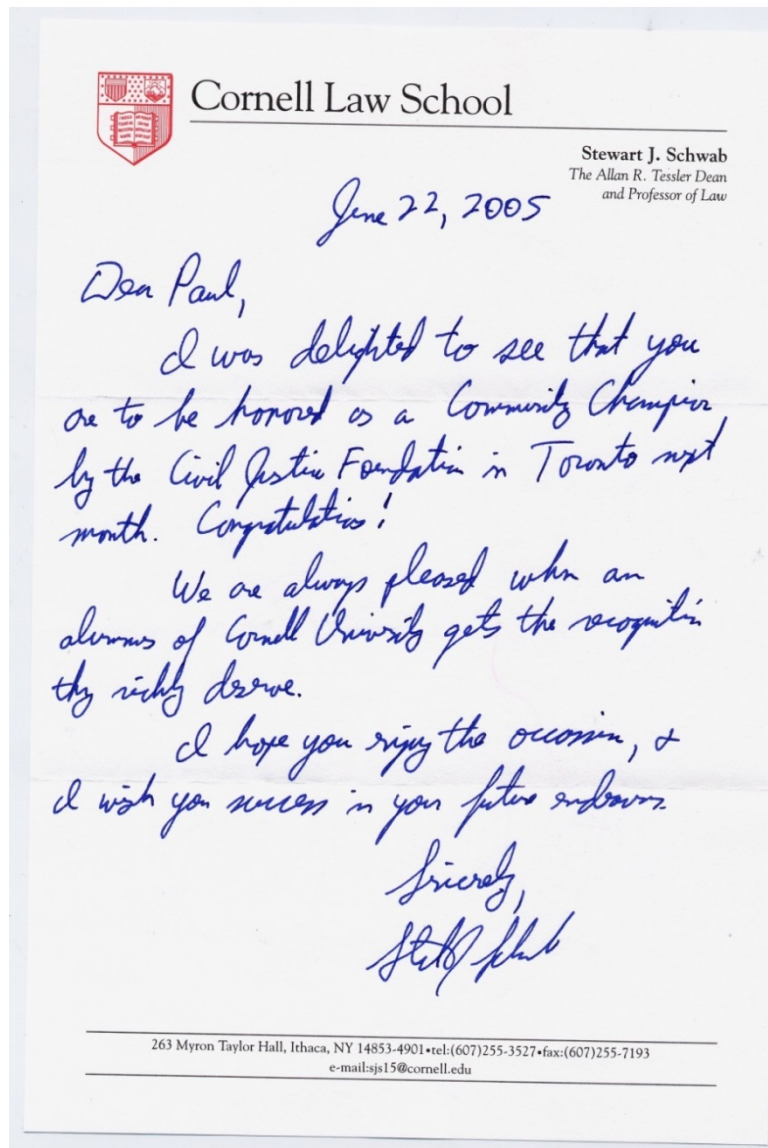 Cornell Law School
Stewart J. Schwab
The Allan R. Tessler Dean
and Professor of Law
June 22, 2005
Dear Paul,
I was delighted to see that you
are to be honored as a Community Champion
by the Civil Justice Foundation in Toronto next
month. Congratulations!
We are always pleased when an
alumnus of Cornell University gets the recognition
they richly deserve.
I hope you enjoy the occasion, &
I wish you success in your future endeavors.
Sincerely,
Stewart J Schwab
263 Myron Taylor Hall, Ithaca, NY 14853-4901•tel:(607)255-3527•fax:(607)255-7193
e-mail:sjs15@cornell.edu